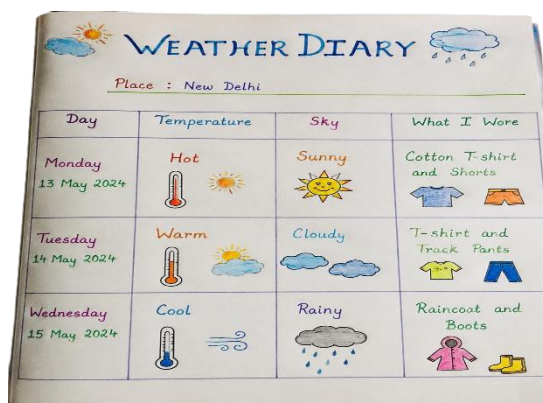 WEATHER DIARY
Place : New Delhi
Day Temperature Sky What I Wore
Monday
13 May 2024
Hot
Sunny
Cotton T-shirt
and Shorts
Tuesday
14 May 2024
Warm
Cloudy
T-shirt and
Track Pants
Wednesday
15 May 2024
Cool
Rainy
Raincoat and
Boots